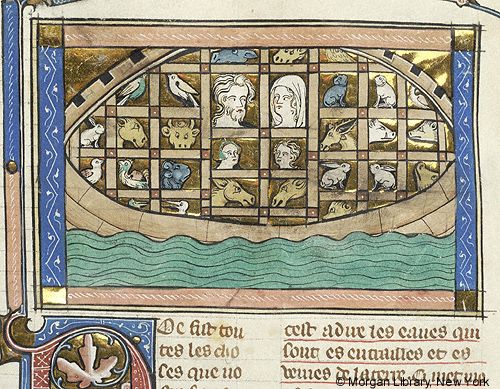 oe fist tou
tes les cho
ses que uo
cest adire les eaues qui
sont es entrailles et es
ueines de la terre.
© Morgan Library, New York